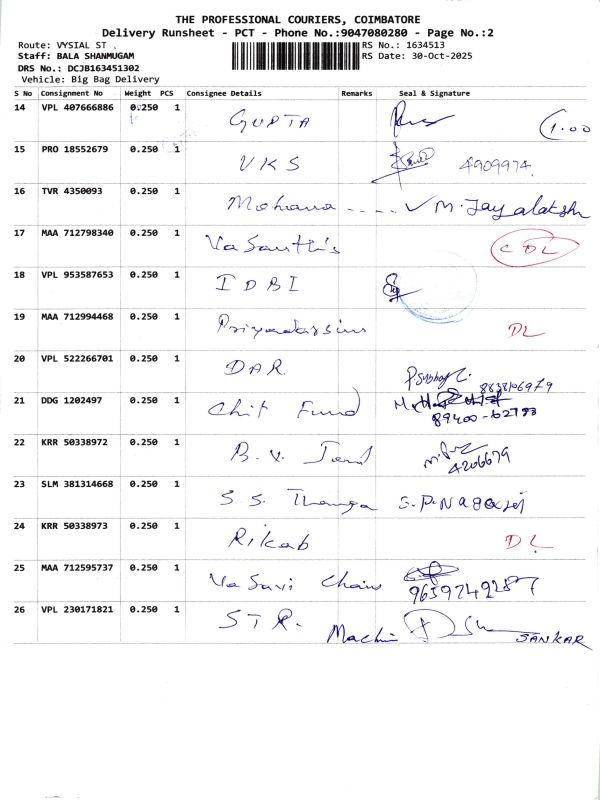 THE PROFESSIONAL COURIERS, COIMBATORE
Delivery Runsheet - PCT - Phone No.:9047080280 - Page No.:2
Route: VYSIAL ST . RS No.: 1634513
Staff: BALA SHANMUGAM RS Date: 30-Oct-2025
DRS No.: DCJB163451302
Vehicle: Big Bag Delivery
S No Consignment No Weight PCS Consignee Details Remarks Seal & Signature
14 VPL 407666886 0.250 1 GUPTA 1.00
15 PRO 18552679 0.250 1 VKS 4909974.
16 TVR 4350093 0.250 1 Mohana .... M. Jayalakshmi
17 MAA 712798340 0.250 1 VaSanthi's CDL
18 VPL 953587653 0.250 1 IDBI
19 MAA 712994468 0.250 1 DL
20 VPL 522266701 0.250 1 DAR.
8838106979
21 DDG 1202497 0.250 1 Chit Fund
89400-62788
22 KRR 50338972 0.250 1 B.V.
4206679
23 SLM 381314668 0.250 1 S S. Thanga S.P. Nagaraj
24 KRR 50338973 0.250 1 Rikab DL
25 MAA 712595737 0.250 1 VaSavi Chains
9659749287
26 VPL 230171821 0.250 1 STR.
SANKAR